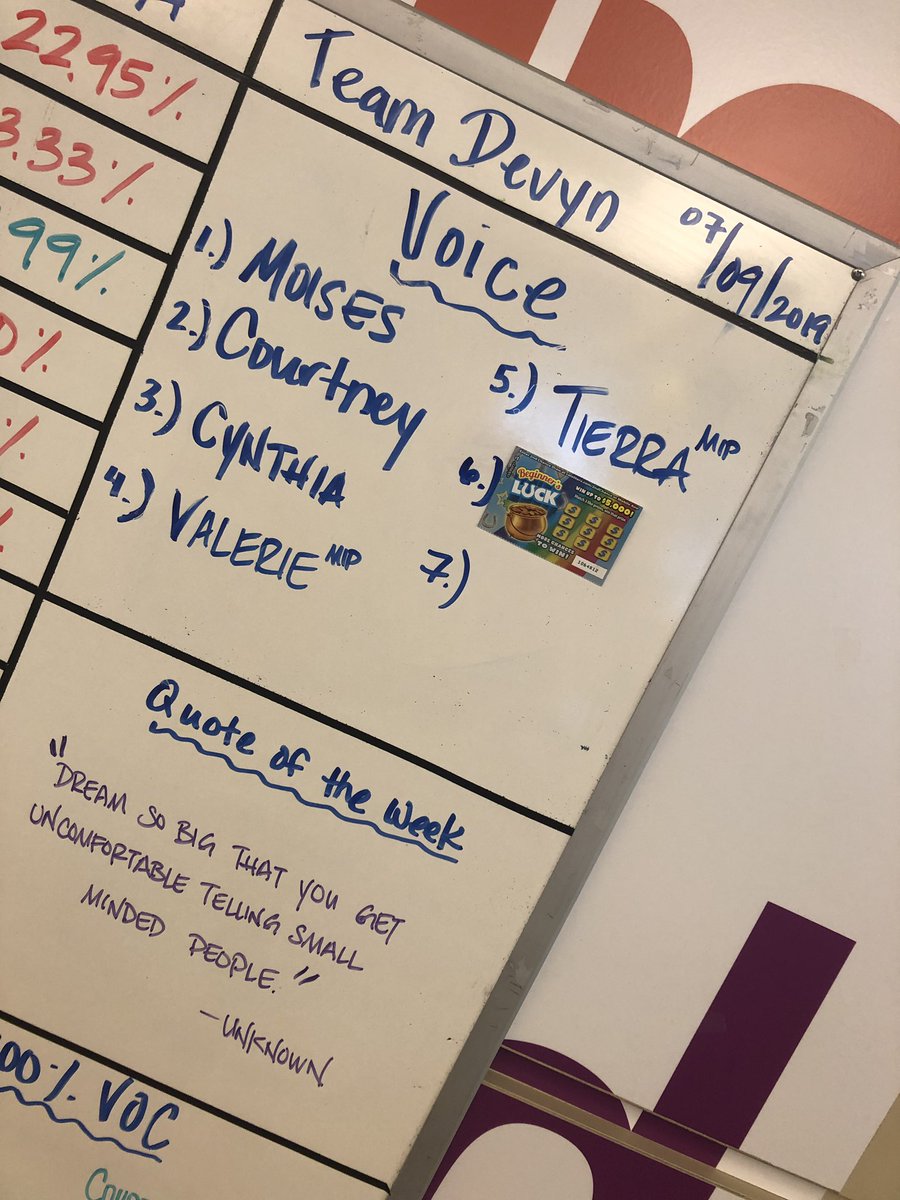 22.95%
3.33%
99%
0%
%
Team Devyn 07/09/2019
Voice
1.) MOISES
2.) Courtney
3.) CYNTHIA
4.) VALERIE MIP
5.) TIERRA MIP
6.)
Beginner's
LUCK
WIN UP TO $5,000!
MORE CHANCES
TO WIN!
7.)
Quote of the Week
"DREAM SO BIG THAT YOU GET
UNCOMFORTABLE TELLING SMALL
MINDED PEOPLE."
-UNKNOWN
00% VOC